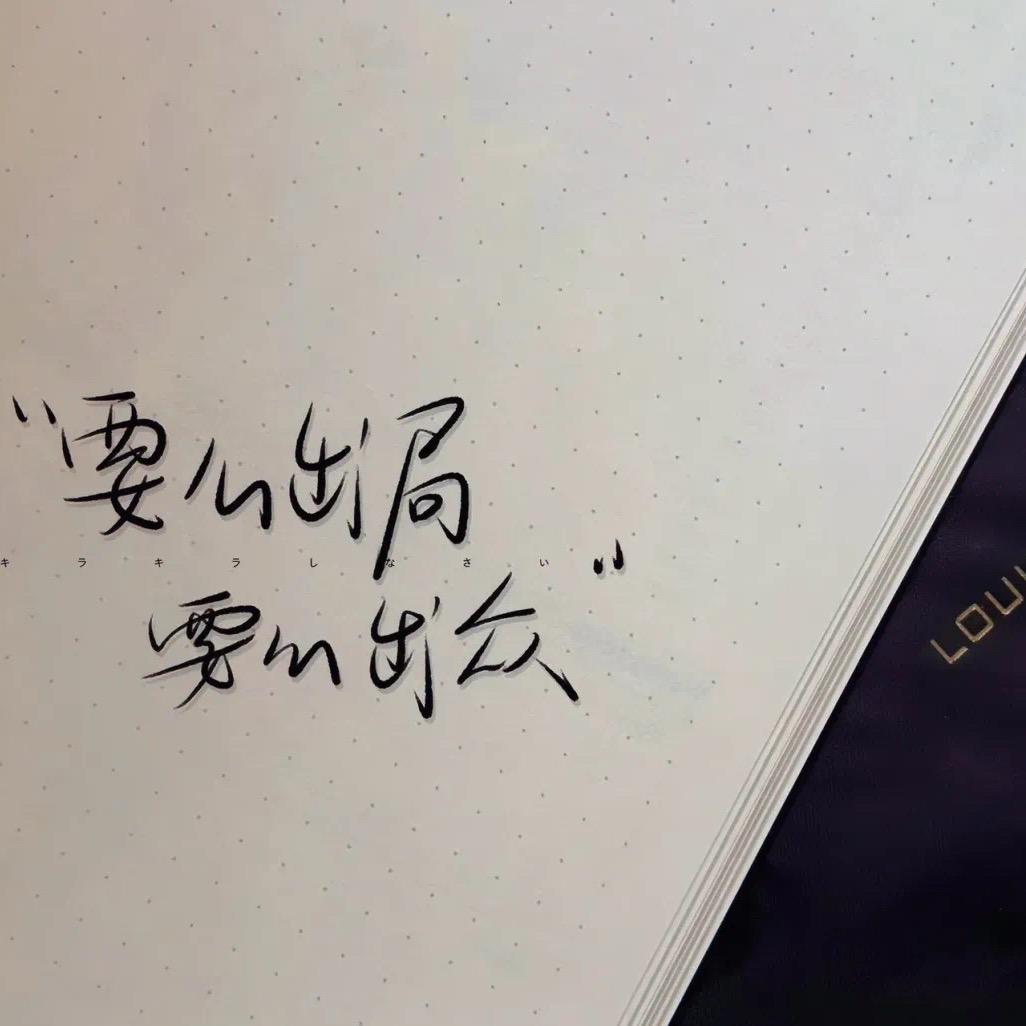 “要么出局
キラキラしなさい
要么出众”
LOUI